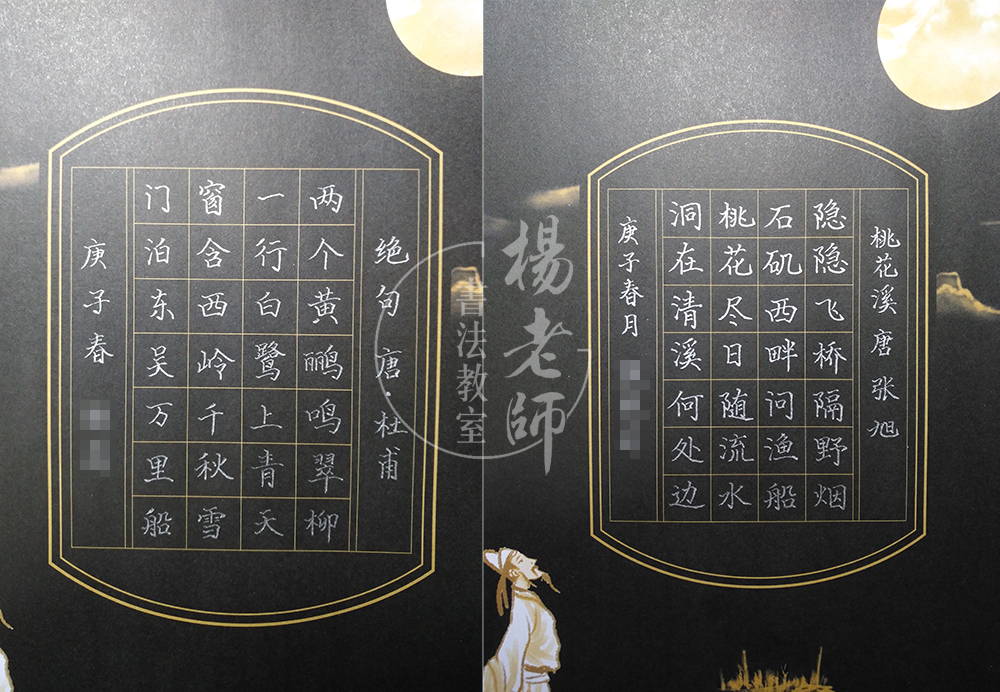 绝句 唐·杜甫
两个黄鹂鸣翠柳
一行白鹭上青天
窗含西岭千秋雪
门泊东吴万里船
庚子春
桃花溪 唐 张旭
隐隐飞桥隔野烟
石矶西畔问渔船
桃花尽日随流水
洞在清溪何处边
庚子春月
楊老師
書法教室